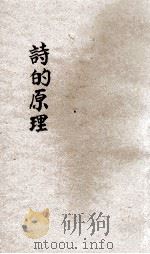 詩的原理
研狗
mtoou.info